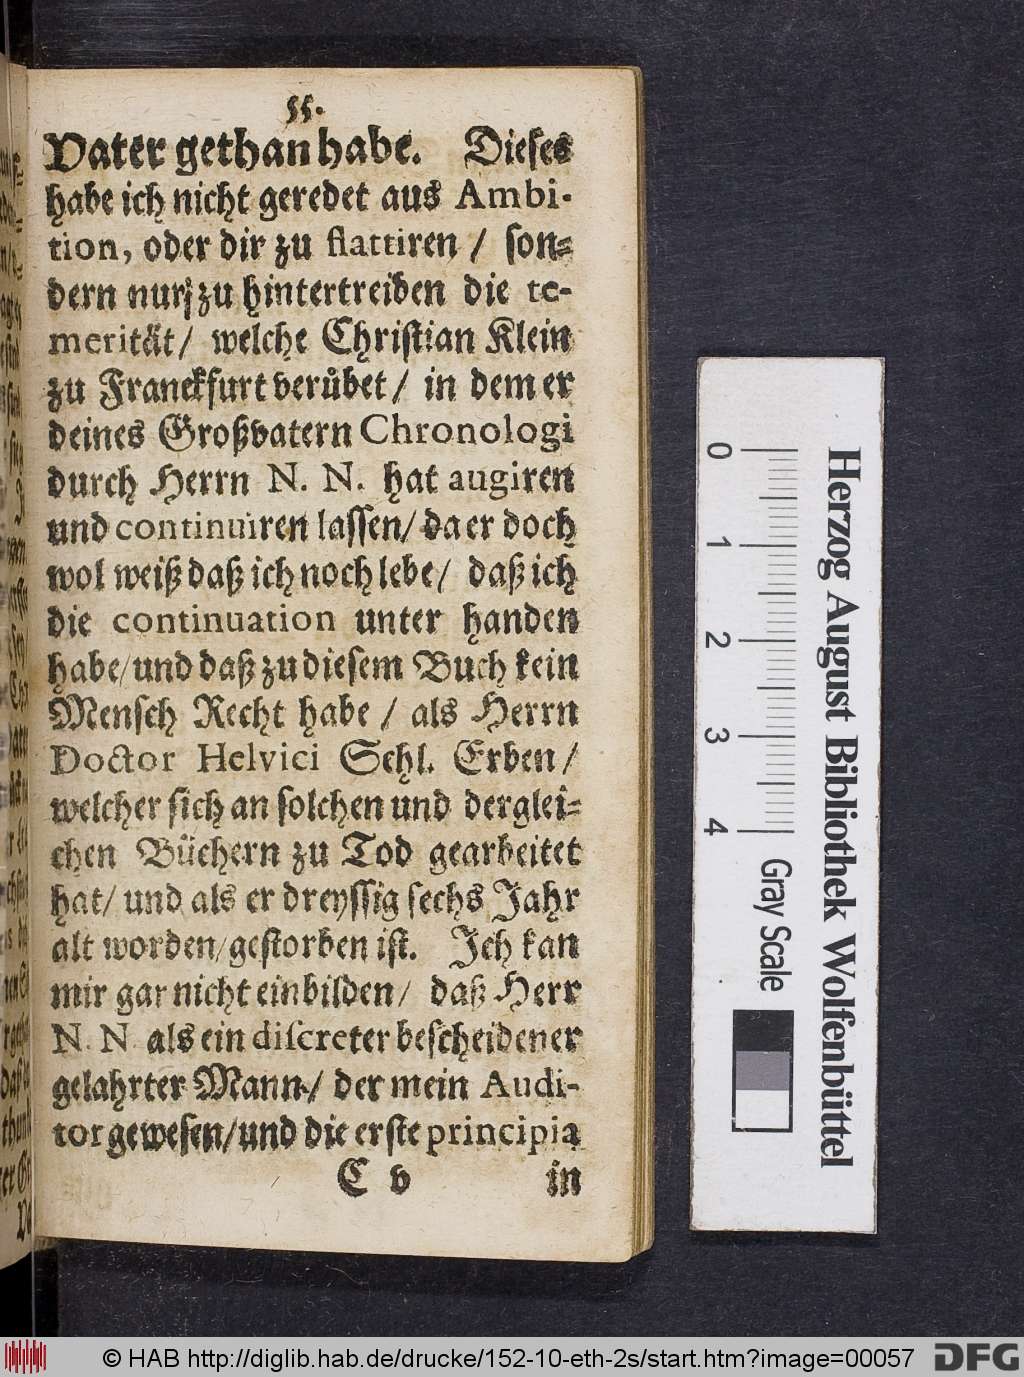 55.
Vater gethan habe. Dieses
habe ich nicht geredet aus Ambi-
tion, oder dir zu flattiren / son=
dern nur zu hintertreiben die te-
merität / welche Christian Klein
zu Franckfurt verůbet / in dem er
deines Großvatern Chronologi
durch Herrn N. N. hat augiren
und continuiren lassen / da er doch
wol weiß daß ich noch lebe / daß ich
die continuation unter handen
habe / und daß zu diesem Buch kein
Mensch Recht habe / als Herrn
Doctor Helvici Sehl. Erben /
welcher sich an solchen und derglei=
chen Büchern zu Tod gearbeitet
hat / und als er dreyssig sechs Jahr
alt worden / gestorben ist. Ich kan
mir gar nicht einbilden / daß Herr
N. N als ein discreter bescheidener
gelahrter Mann / der mein Audi-
tor gewesen / und die erste principia
C v in
Herzog August Bibliothek Wolfenbüttel
0 1 2 3 4 Gray Scale
© HAB http://diglib.hab.de/drucke/152-10-eth-2s/start.htm?image=00057
DFG